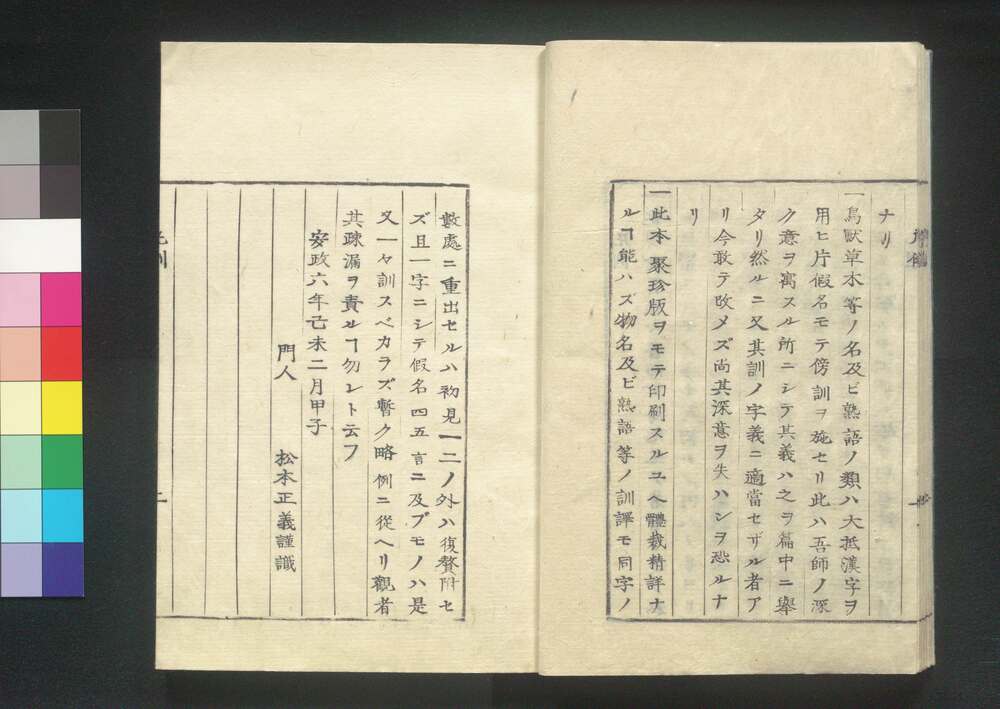 ナリ
一鳥獸草木等ノ名及ビ熟語ノ類ハ大抵漢字ヲ
用ヒ片假名モテ傍訓ヲ施セリ此ハ吾師ノ深
ク意ヲ寓スル所ニシテ其義ハ之ヲ篇中ニ舉
タリ然ルニ又其訓ノ字義ニ適當セザル者ア
リ今敢テ改メズ尚其深意ヲ失ハンヲ恐ルナ
リ
一此本聚珍版ヲモテ印刷スルユヘ體裁精詳ナ
ルヿ能ハズ物名及ビ熟語等ノ訓譯モ同字ノ
數處ニ重出セルハ初見一二ノ外ハ復贅附セ
ズ且一字ニシテ假名四五言ニ及ブモノハ是
又一々訓スベカラズ暫ク略例ニ從ヘリ觀者
其疎漏ヲ責ルヿ勿レト云フ
安政六年己未二月甲子
門人　松本正義謹識
二